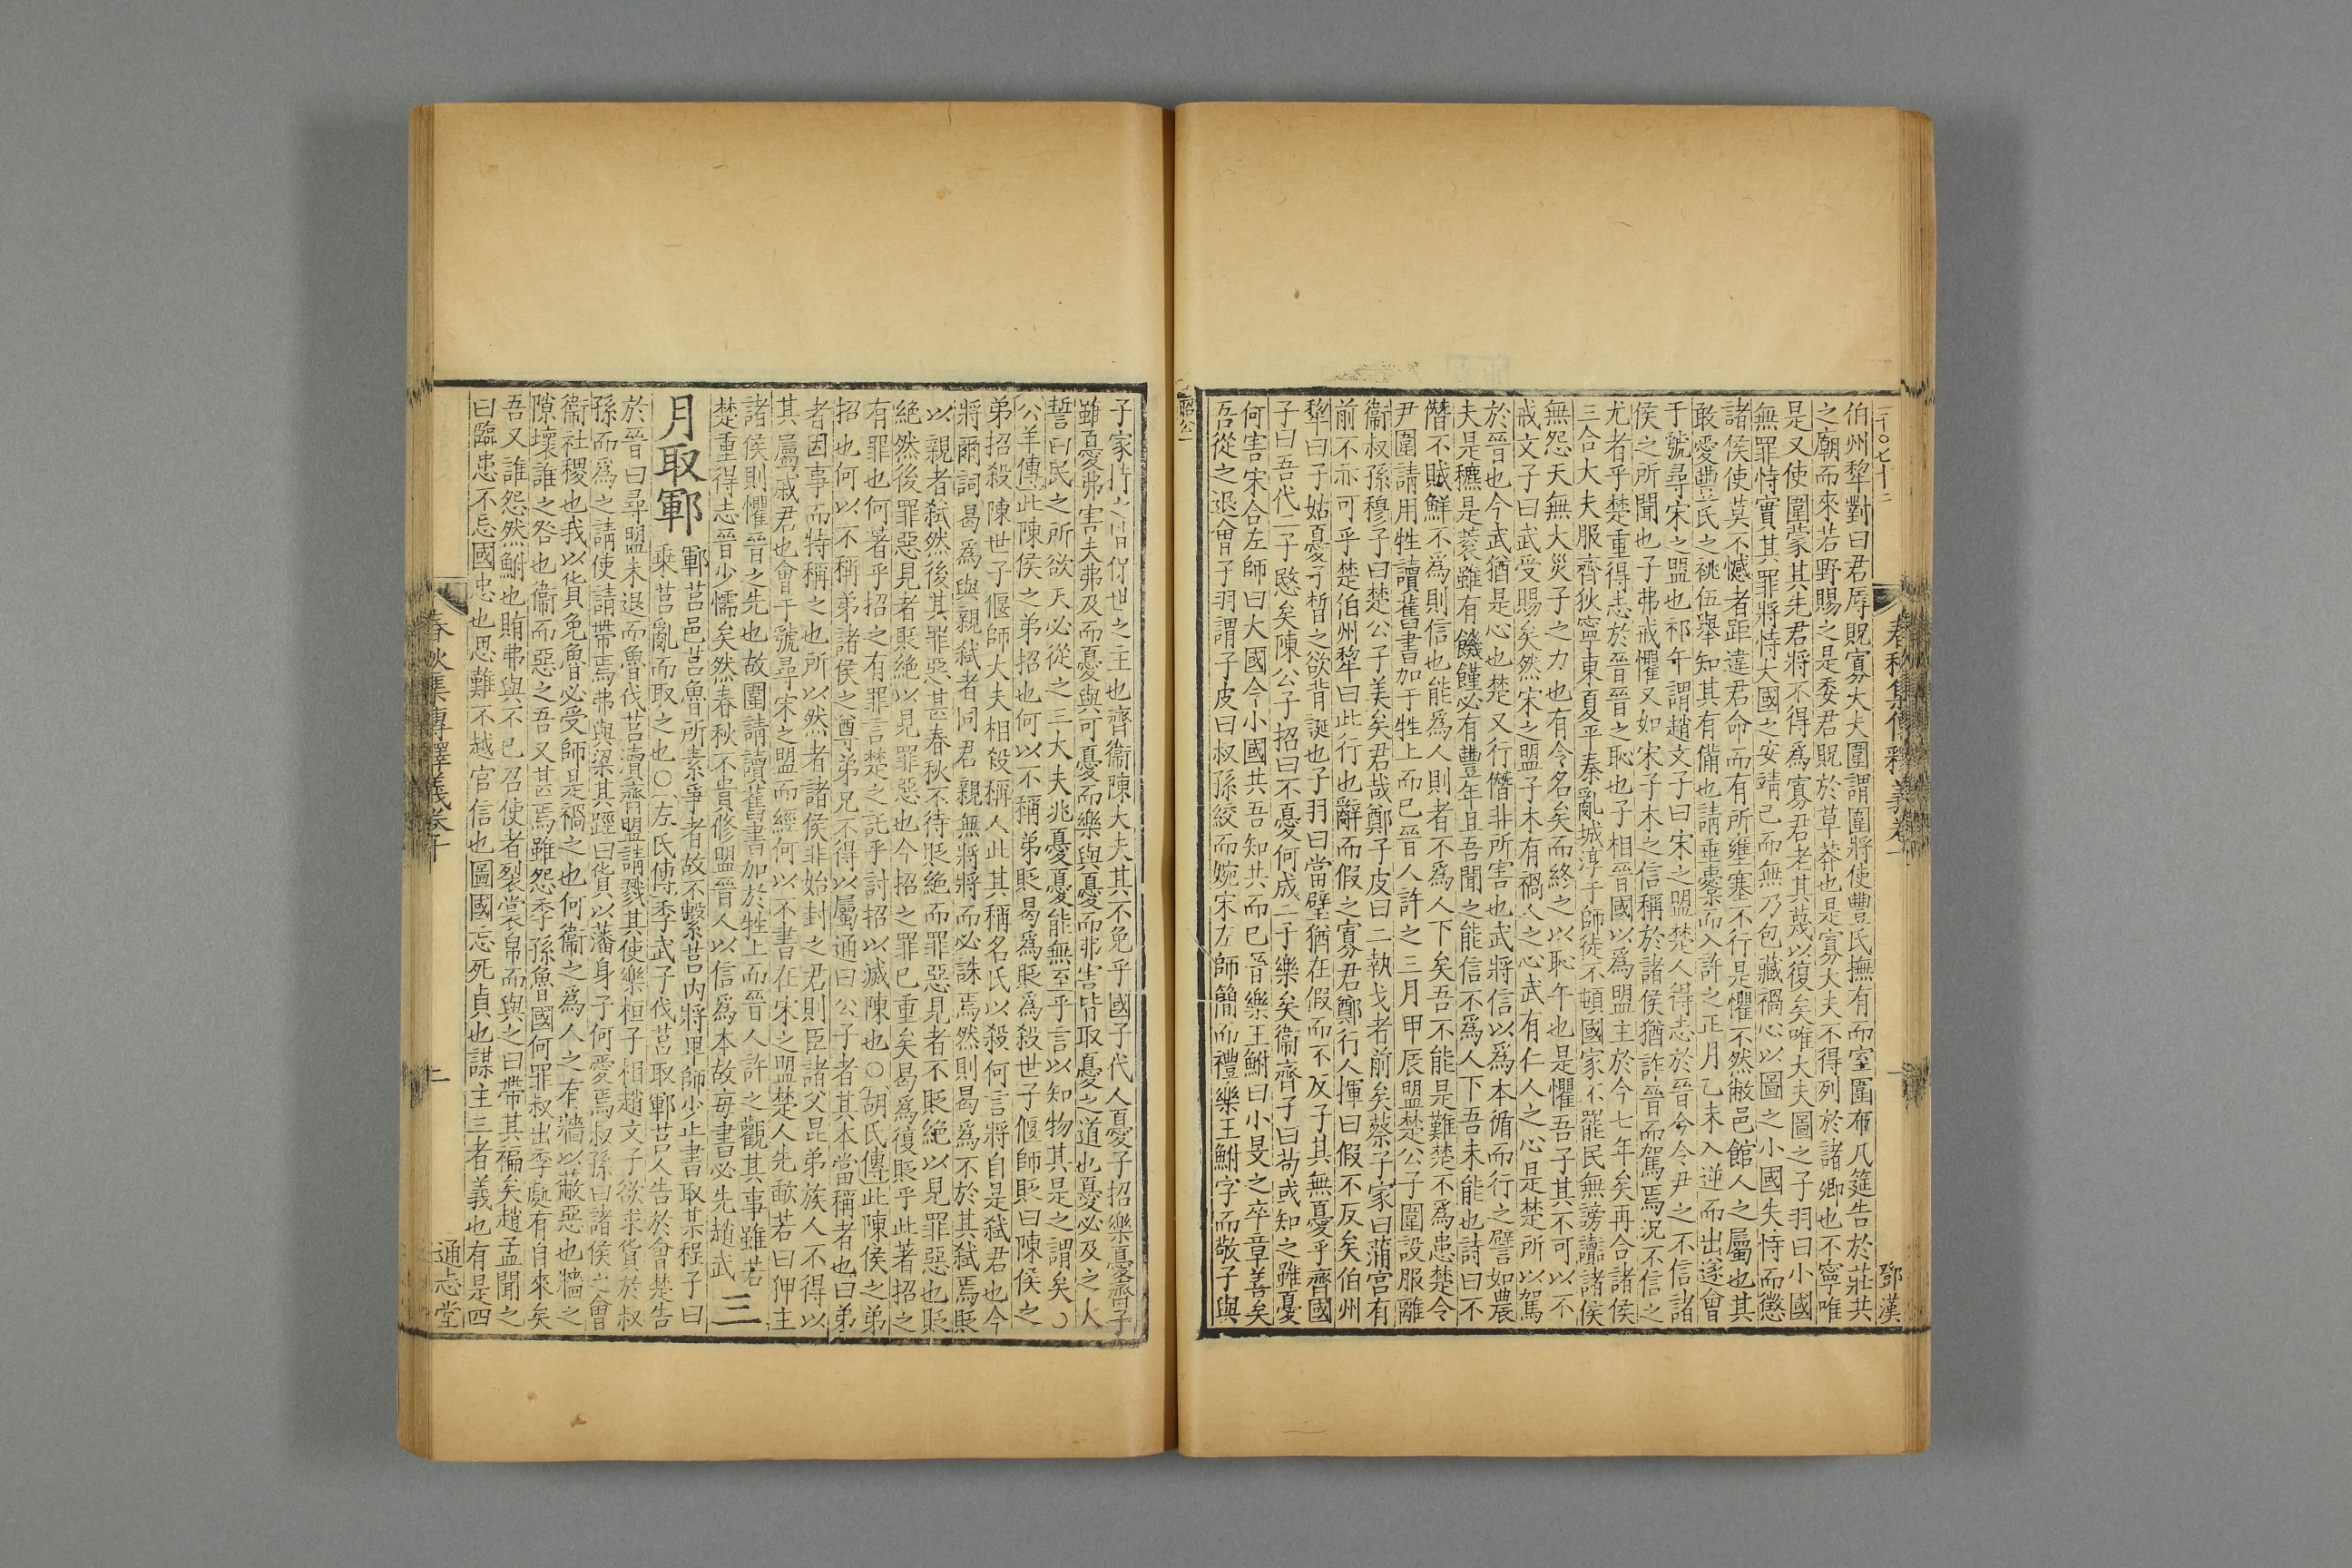 伯州犂對曰君辱貺寡大夫圍謂圍將使豐氏撫有而室圍布几筵告於莊共
之廟而來若野賜之是委君貺於草莽也是寡大夫不得列於諸卿也不寧唯
是又使圍蒙其先君將不得爲寡君老其蔑以復矣唯大夫圖之子羽曰小國
無罪恃實其罪將恃大國之安靖己而無乃包藏禍心以圖之小國失恃而懲
諸侯使莫不憾者距違君命而有所壅塞不行是懼不然敝邑館人之屬也其
敢愛豐氏之祧伍舉知其有備也請垂櫜而入許之正月乙未入逆而出遂會
于虢尋宋之盟也祁午謂趙文子曰宋之盟楚人得志於晉今令尹之不信諸
侯之所聞也子弗戒懼又如宋子木之信稱於諸侯猶詐晉而駕焉況不信之
尤者乎楚重得志於晉晉之恥也子相晉國以爲盟主於今七年矣再合諸侯
三合大夫服齊狄寧東夏平秦亂城淳于師徒不頓國家不罷民無謗讟諸侯
無怨天無大災子之力也有令名矣而終之以恥午也是懼吾子其不可以不
戒文子曰武受賜矣然宋之盟子木有禍人之心武有仁人之心是楚所以駕
於晉也今武猶是心也楚又行僭非所害也武將信以爲本循而行之譬如農
夫是穮是蓘雖有饑饉必有豐年且吾聞之能信不爲人下吾未能也詩曰不
僭不賊鮮不爲則信也能爲人則者不爲人下矣吾不能是難楚不爲患楚令
尹圍請用牲讀舊書加于牲上而已晉人許之三月甲辰盟楚公子圍設服離
衞叔孫穆子曰楚公子美矣君哉鄭子皮曰二執戈者前矣蔡子家曰蒲宮有
前不亦可乎楚伯州犂曰此行也辭而假之寡君鄭行人揮曰假不反矣伯州
犂曰子姑憂子晳之欲背誕也子羽曰當璧猶在假而不反子其無憂乎齊國
子曰吾代二子愍矣陳公子招曰不憂何成二子樂矣衞齊子曰茍或知之雖憂
何害宋合左師曰大國令小國共吾知共而已晉樂王鮒曰小旻之卒章善矣
吾從之退會子羽謂子皮曰叔孫絞而婉宋左師簡而禮樂王鮒字而敬子與
昭公
春秋集傳釋義卷
一
鄧漢
子家持之皆保世之主也齊衞陳大夫其不免乎國子代人憂子招樂憂齊子
雖憂弗害夫弗及而憂與可憂而樂與憂而弗害皆取憂之道也憂必及之大
誓曰民之所欲天必從之三大夫兆憂憂能無至乎言以知物其是之謂矣○
公羊傳此陳侯之弟招也何以不稱弟貶曷爲貶爲殺世子偃師貶曰陳侯之
弟招殺陳世子偃師大夫相殺稱人此其稱名氏以殺何言將自是弑君也今
將爾詞曷爲與親弑者同君親無將將而必誅焉然則曷爲不於其弑焉貶
以親者弑然後其罪惡甚春秋不待貶絕而罪惡見者不貶絕以見罪惡也貶
絕然後罪惡見者貶絕以見罪惡也今招之罪已重矣曷爲復貶乎此著招之
有罪也何著乎招之有罪言楚之託乎討招以滅陳也○胡氏傳此陳侯之弟
招也何以不稱弟諸侯之尊弟兄不得以屬通曰公子者其本當稱者也曰弟
者因事而特稱之也所以然者諸侯非始封之君則臣諸父昆弟族人不得以
其屬戚君也會于虢尋宋之盟而經何以不書在宋之盟楚人先歃若曰狎主
諸侯則懼晉之先也故圍請讀舊書加於牲上而晉人許之觀其事雖若
楚重得志晉少懦矣然春秋不貴修盟晉人以信爲本故每書必先趙武 三
月取鄆 鄆莒邑莒魯所素爭者故不繫莒內將卑師少止書取某程子曰
乘莒亂而取之也○左氏傳季武子伐莒取鄆莒人告於會楚告
於晉曰尋盟未退而魯伐莒瀆齊盟請戮其使樂桓子相趙文子欲求貨於叔
孫而爲之請使請帶焉弗與梁其踁曰貨以藩身子何愛焉叔孫曰諸侯之會
衞社稷也我以貨免魯必受師是禍之也何衞之爲人之有牆以蔽惡也牆之
隙壞誰之咎也衞而惡之吾又甚焉雖怨季孫魯國何罪叔出季處有自來矣
吾又誰怨然鮒也賄弗與不已召使者裂裳帛而與之曰帶其褊矣趙孟聞之
曰臨患不忘國忠也思難不越官信也圖國忘死貞也謀主三者義也有是四
春秋集傳釋義卷十
二
通志堂